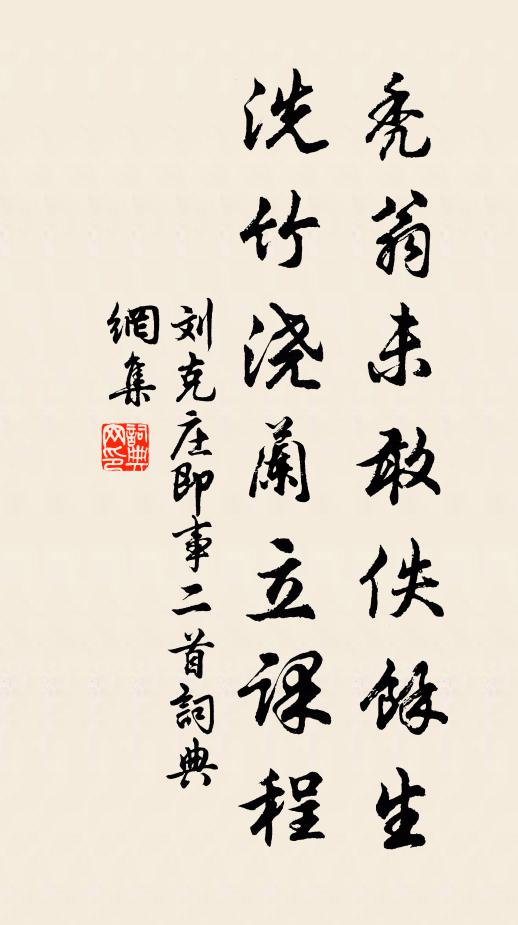 秃翁未敢佚餘生
洗竹浇蘭立课程
刘克庄即事二首詞典
網集
詞典
网印